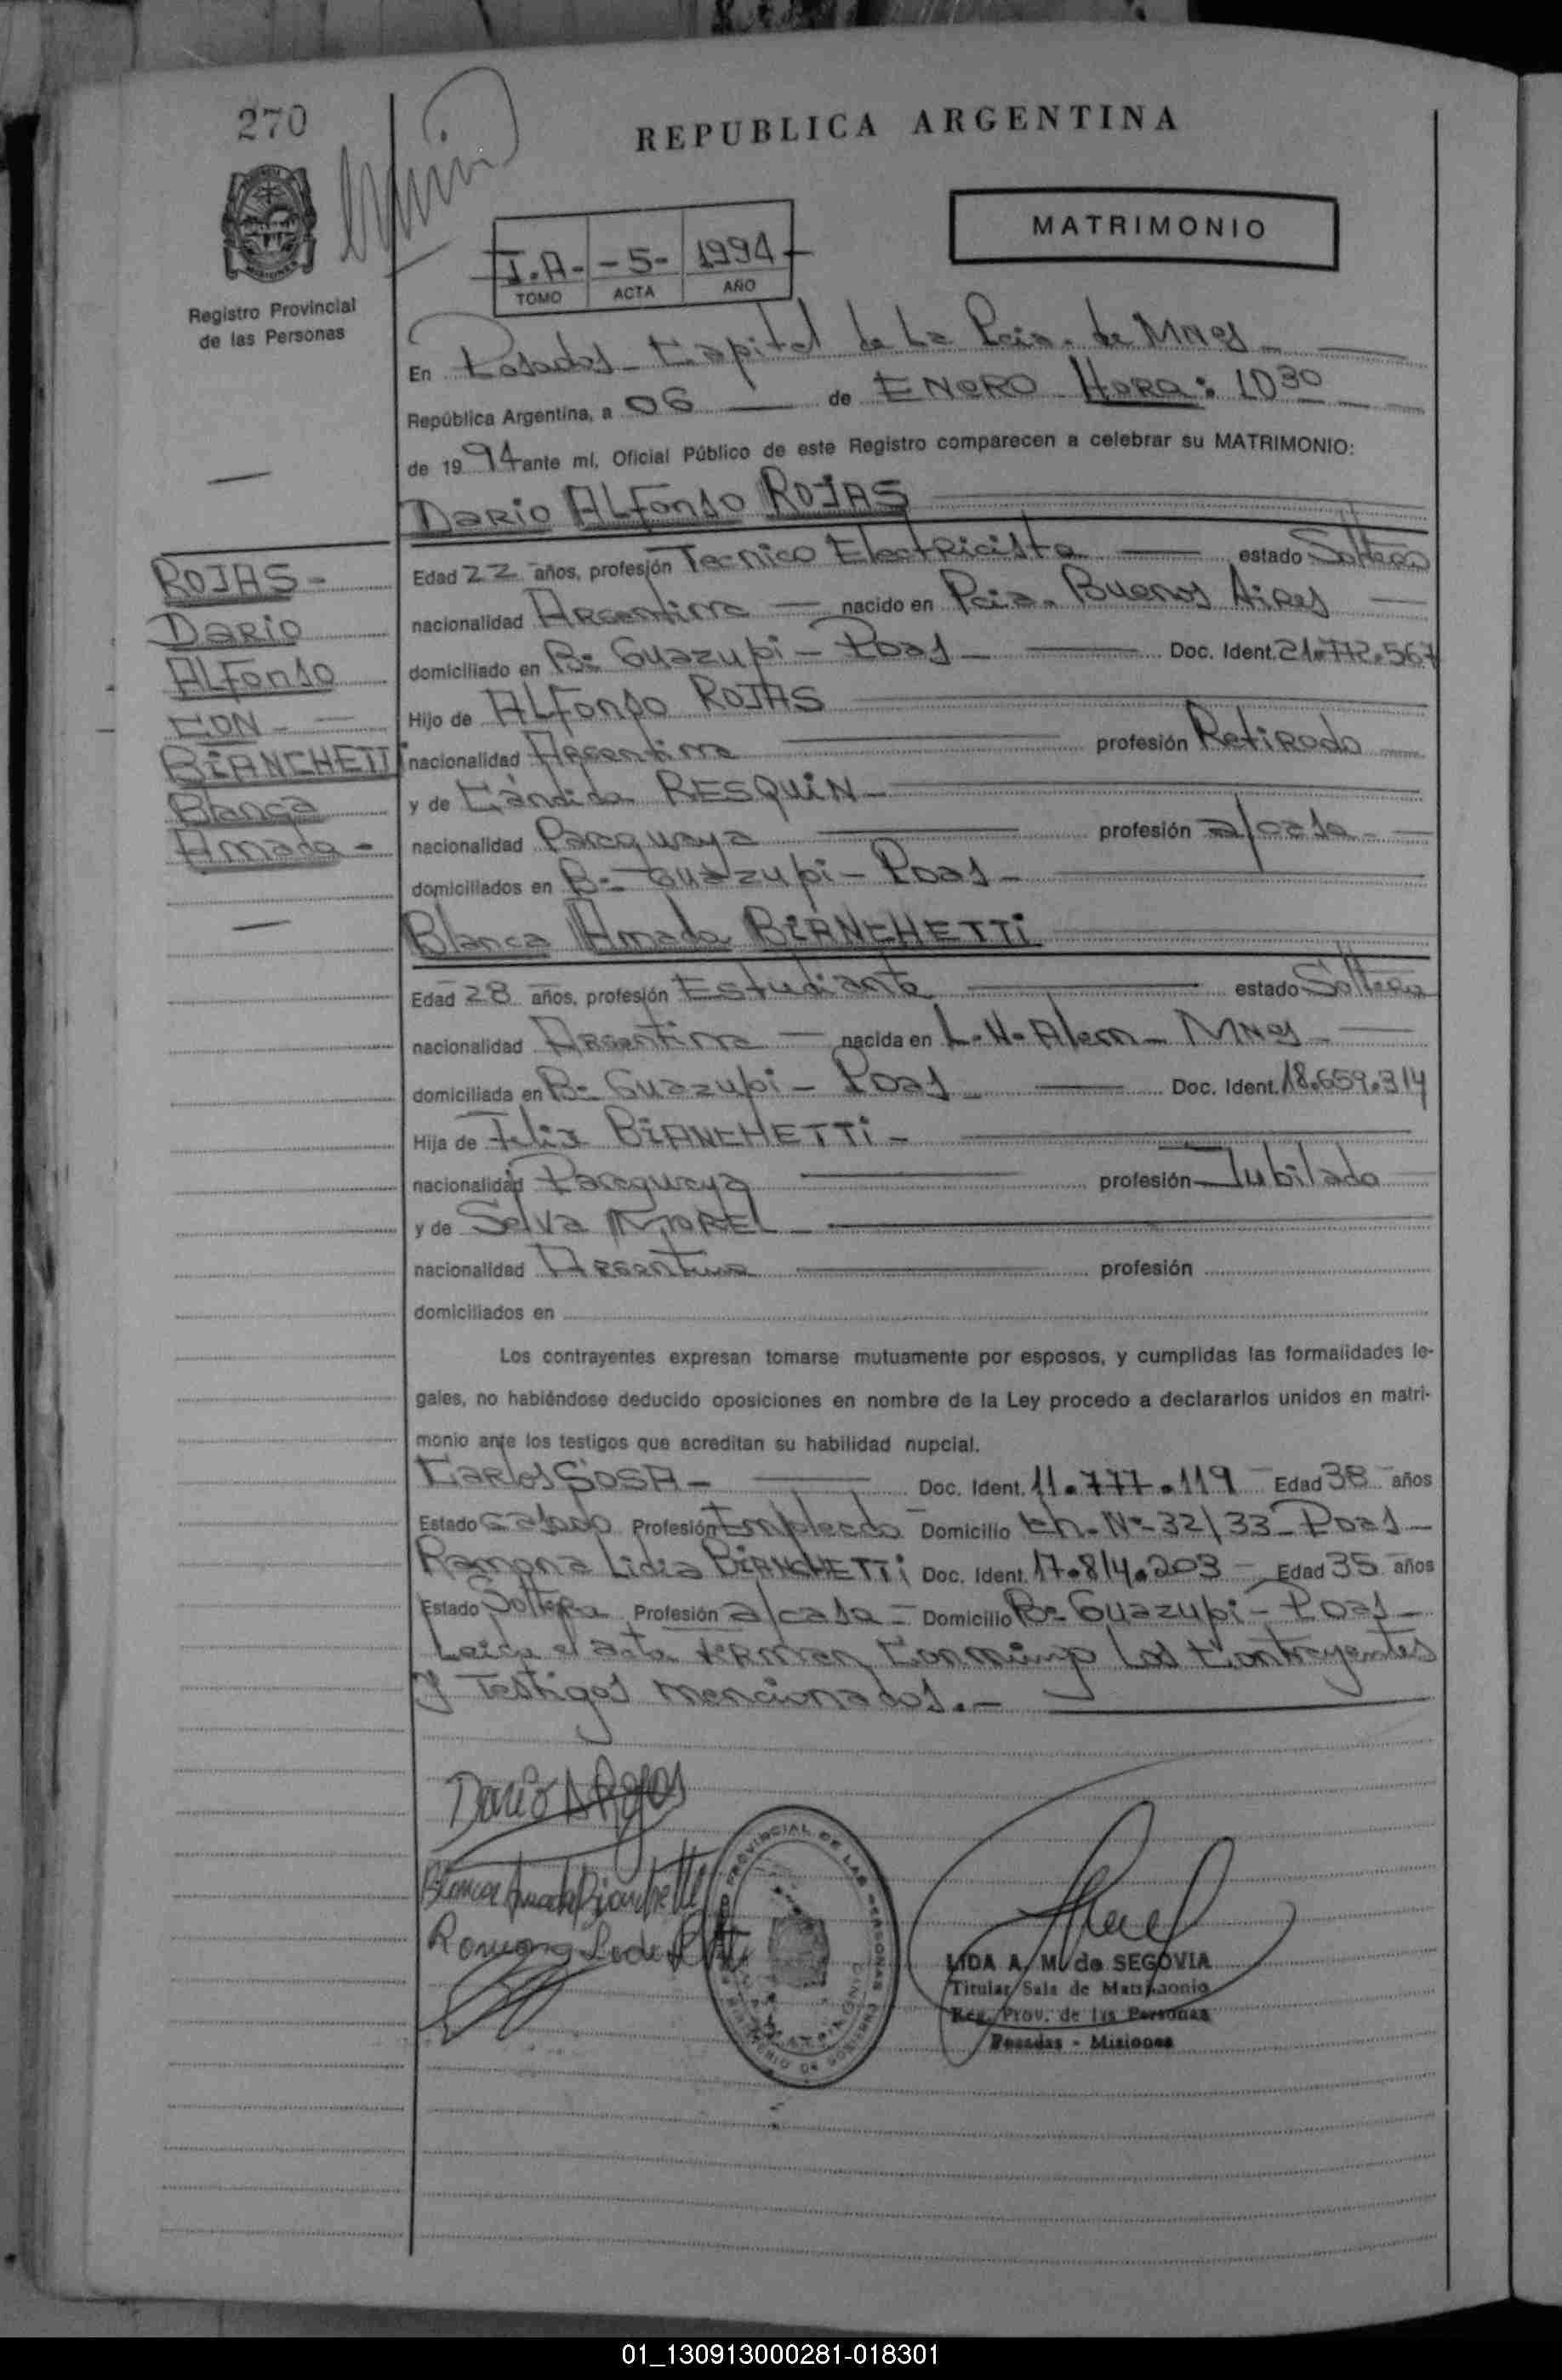 270
REPUBLICA ARGENTINA
MATRIMONIO
I.A- -5- 1994
TOMO ACTA AÑO
Registro Provincial
de las Personas
En Posadas - Capital de La Pcia. de MNes -
República Argentina, a 06 de ENERO HORA: 10 30
de 19 94 ante mí, Oficial Público de este Registro comparecen a celebrar su MATRIMONIO:
Dario ALFonso ROJAS
Edad 22 años, profesión Tecnico Electricista estado Soltero
nacionalidad Argentina nacido en Pcia. Buenos Aires
domiciliado en Bº Guazupi - Pdas - Doc. Ident. 21.772.567
Hijo de ALFonso ROJAS
nacionalidad Argentina profesión Retirado
y de Cándida RESQUIN -
nacionalidad Paraguaya profesión a/casa -
domiciliados en Bº Guazupi - Pdas -
ROJAS -
Dario
ALFonso
CON -
BIANCHETTI
Blanca
Amada -
Blanca Amada BIANCHETTI
Edad 28 años, profesión Estudiante estado Soltera
nacionalidad Argentina nacida en L.N. Alem - MNes -
domiciliada en Bº Guazupi - Pdas - Doc. Ident. 18.659.314
Hija de Felix BIANCHETTI -
nacionalidad Paraguaya profesión Jubilado
y de Selva MOREL -
nacionalidad Argentina profesión
domiciliados en
Los contrayentes expresan tomarse mutuamente por esposos, y cumplidas las formalidades le-
gales, no habiéndose deducido oposiciones en nombre de la Ley procedo a declararlos unidos en matri-
monio ante los testigos que acreditan su habilidad nupcial.
Carlos SOSA - Doc. Ident. 11.777.119 Edad 38 años
Estado casado Profesión Empleado Domicilio Ch. Nº 32/33 - Pdas -
Ramona Lidia BIANCHETTI Doc. Ident. 17.814.203 - Edad 35 años
Estado Soltera Profesión a/casa - Domicilio Bº Guazupi - Pdas -
Leida el acta firman conmigo los contrayentes
y testigos mencionados. -
Dario A Rojas
Blanca Amada Bianchetti
PROVINCIAL DE LAS PERSONAS
LIDA A. M. de SEGOVIA
Titular Sala de Matrimonio
Reg. Prov. de las Personas
Posadas - Misiones
01_130913000281-018301